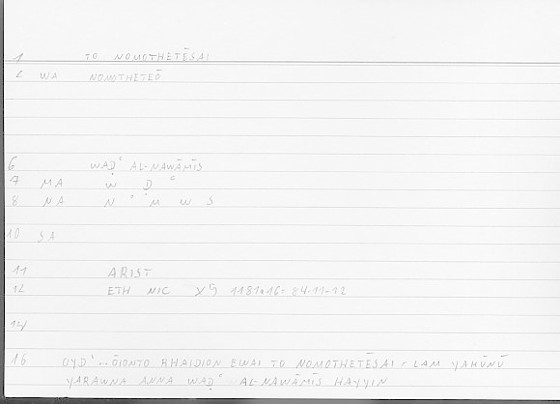 1 TO NOMOTHETĒSAI
2 WA NOMOTHETEŌ
6 WAḌʿ AL-NAWĀMĪS
7 MA W Ḍ ʿ
8 NA N ʾ M W S
10 SA
11 ARIST
12 ETH NIC 1181A16= 84.11-12
14
16 OYDʾ.. ŌIONTO RHAIDION EINAI TO NOMOTHETĒSAI = LAM YAKŪNŪ
YARAWNA ANNA WAḌʿ AL-NAWĀMĪS HAYYIN